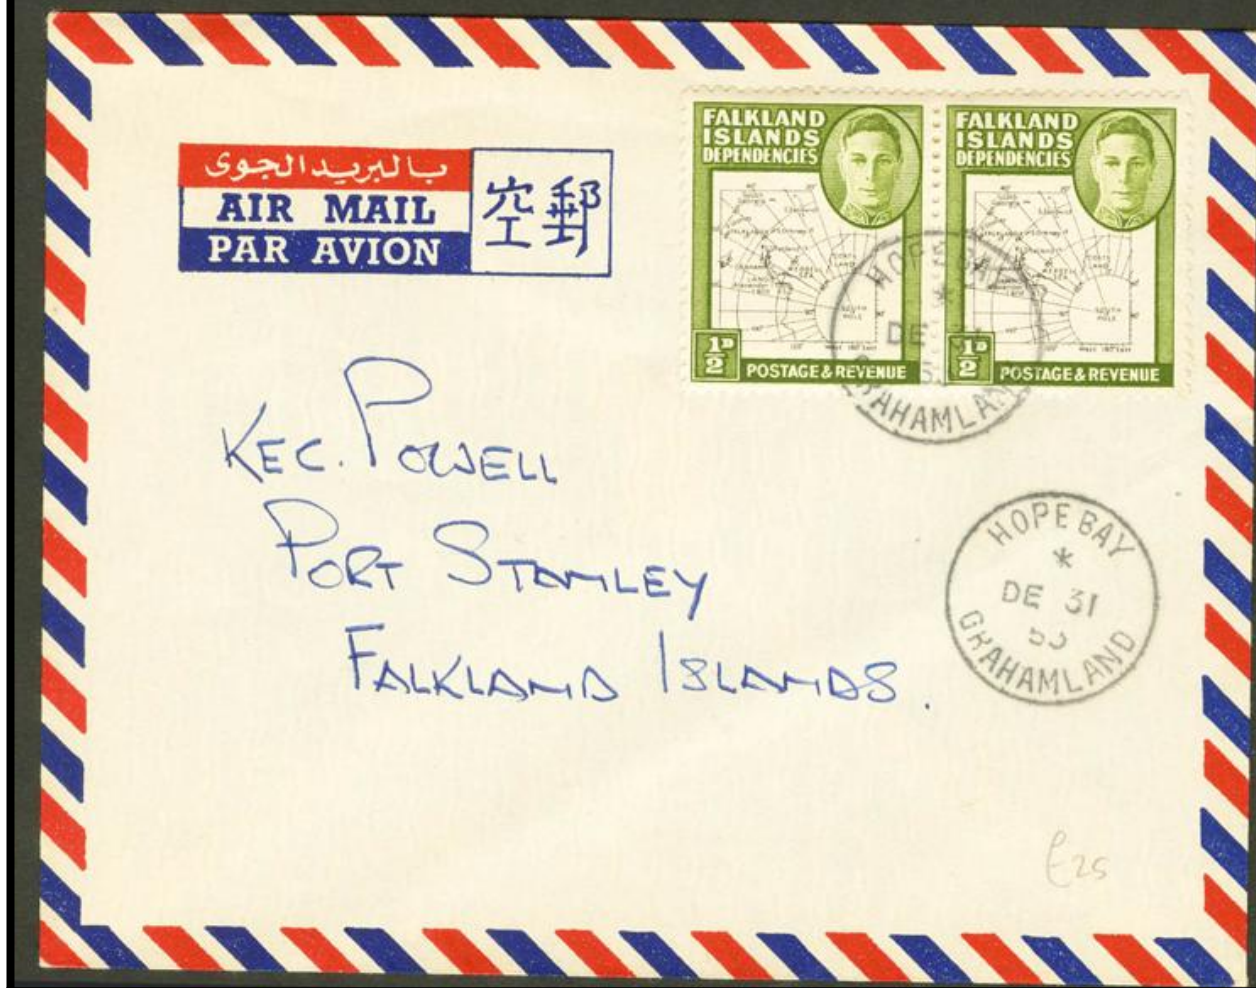 بالبريد الجوى
AIR MAIL
PAR AVION
空郵
FALKLAND
ISLANDS
DEPENDENCIES
SOUTH
POLE
1/2D
POSTAGE & REVENUE
FALKLAND
ISLANDS
DEPENDENCIES
SOUTH
POLE
1/2D
POSTAGE & REVENUE
HOPE BAY
*
DE 31
GRAHAMLAND
KEC. POWELL
PORT STANLEY
FALKLAND ISLANDS.
HOPE BAY
*
DE 31
GRAHAMLAND
£25